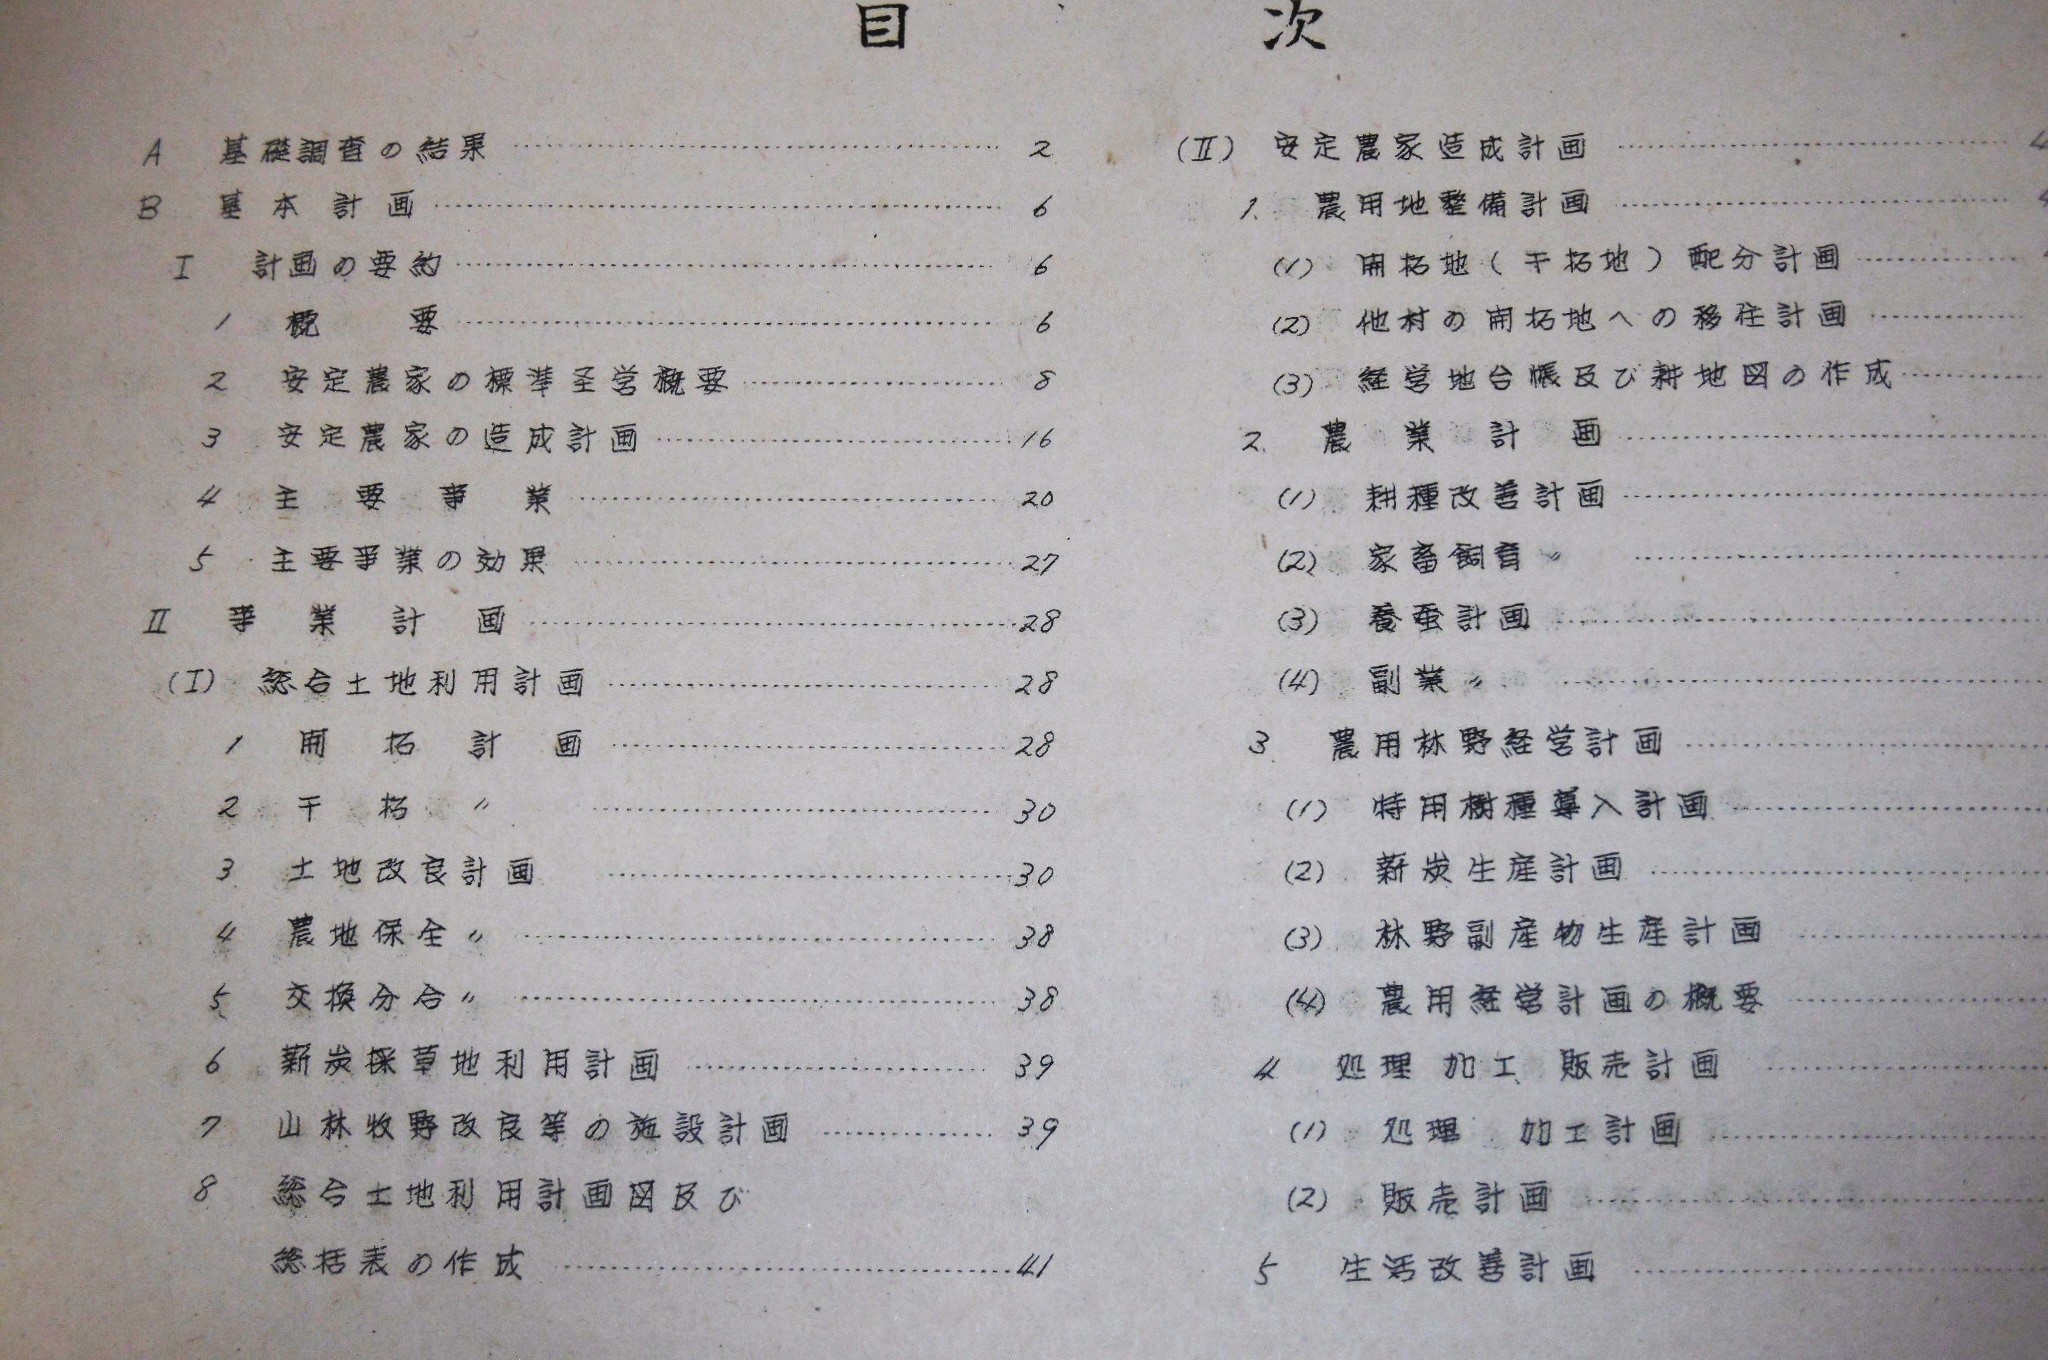 目 次
A 基礎調査の結果 …… 2
B 基本計画 …… 6
I 計画の要約 …… 6
1 概要 …… 6
2 安定農家の標準圣営概要 …… 8
3 安定農家の造成計画 …… 16
4 主要事業 …… 20
5 主要事業の効果 …… 27
II 事業計画 …… 28
(I) 総合土地利用計画 …… 28
1 開拓計画 …… 28
2 干拓 〃 …… 30
3 土地改良計画 …… 30
4 農地保全 〃 …… 38
5 交換分合 〃 …… 38
6 薪炭採草地利用計画 …… 39
7 山林牧野改良等の施設計画 …… 39
8 総合土地利用計画図及び
総括表の作成 …… 41
(II) 安定農家造成計画 …… 4
1. 農用地整備計画 …… 4
(1) 開拓地(干拓地)配分計画 ……
(2) 他村の開拓地への移住計画 ……
(3) 経営地台帳及び耕地図の作成 ……
2. 農業計画 ……
(1) 耕種改善計画 ……
(2) 家畜飼育 〃 ……
(3) 養蚕計画 ……
(4) 副業 〃 ……
3 農用林野経営計画 ……
(1) 特用樹種導入計画 ……
(2) 薪炭生産計画 ……
(3) 林野副産物生産計画 ……
(4) 農用経営計画の概要 ……
4. 処理 加工 販売計画 ……
(1) 処理 加工計画 ……
(2) 販売計画 ……
5 生活改善計画 ……